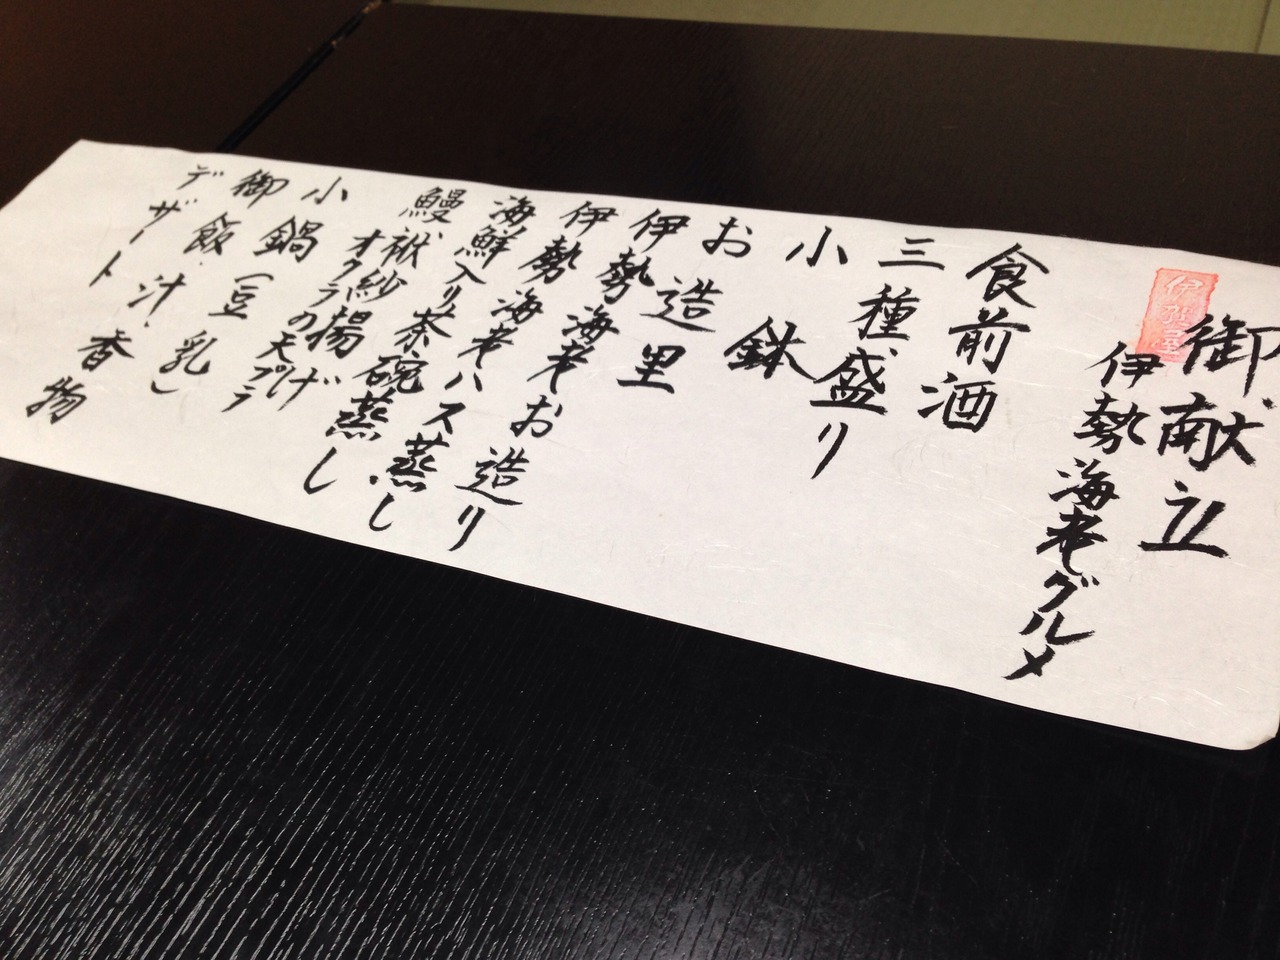 御献立
伊賀屋
伊勢海老グルメ
食前酒
三種盛り
小鉢
お造里
伊勢海老お造り
伊勢海老ハス蒸し
海鮮入り茶碗蒸し
鰻袱紗揚げ
オクラの天プラ
小鍋(豆乳)
御飯・汁・香物
デザート